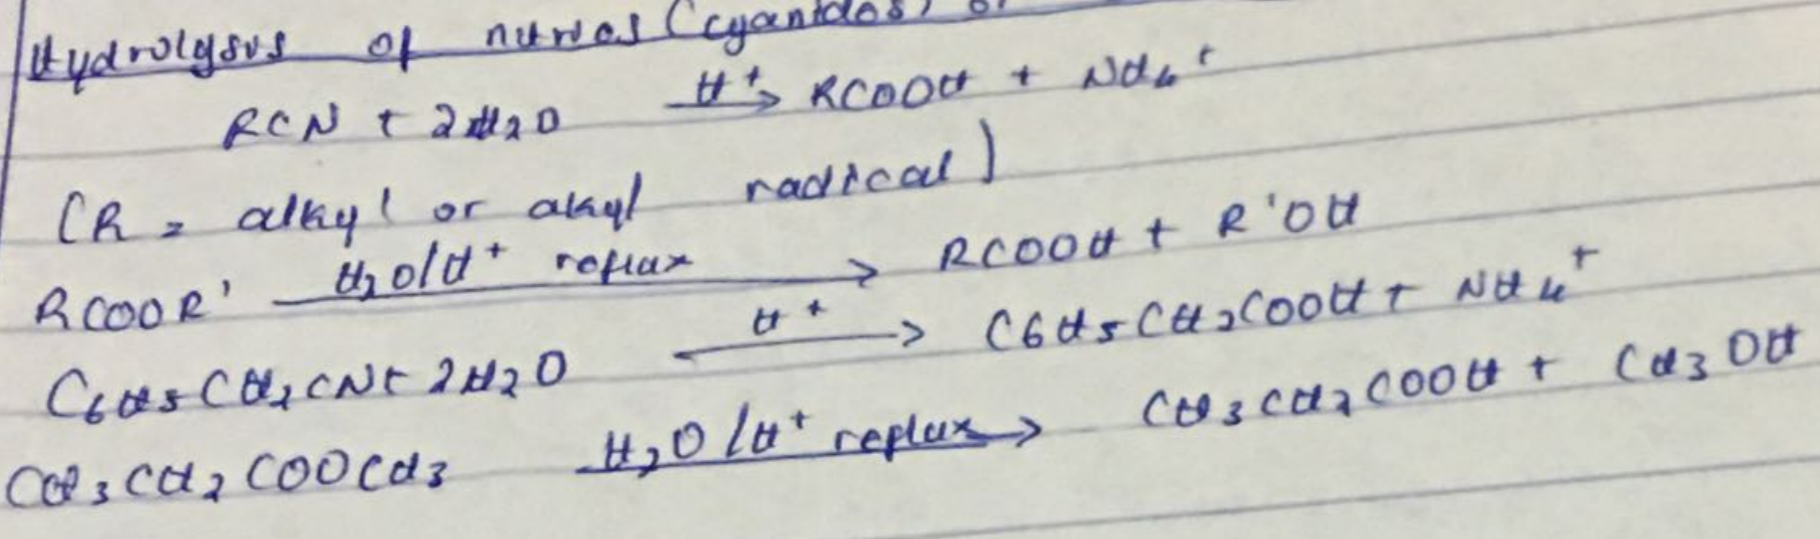 Hydrolysis of nitriles (cyanides) or
RCN + 2H₂O H⁺→ RCOOH + NH₄⁺
(R = alkyl or akyl radical)
RCOOR' H₂O/H⁺ reflux → RCOOH + R'OH
C₆H₅CH₂CN + 2H₂O H⁺ → C6H5CH₂COOH + NH₄⁺
CH₃CH₂COOCH₃ H₂O/H⁺ reflux → CH₃CH₂COOH + CH₃OH